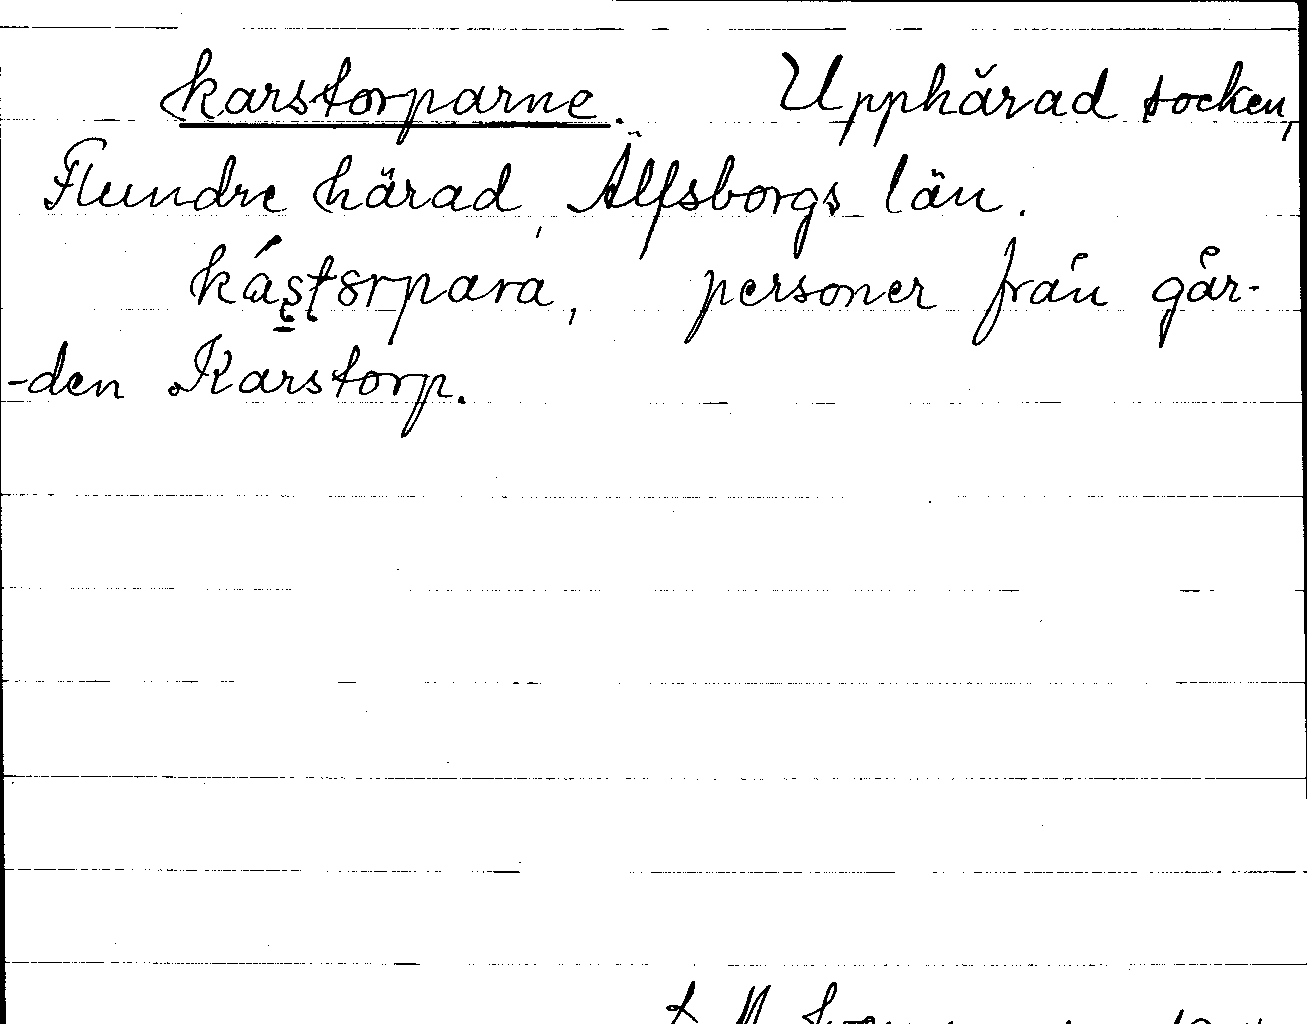 karstorparne. Upphärad socken,
Flundre härad, Älfsborgs län.
kás̱ţȣrpara, personer från går-
-den Karstorp.